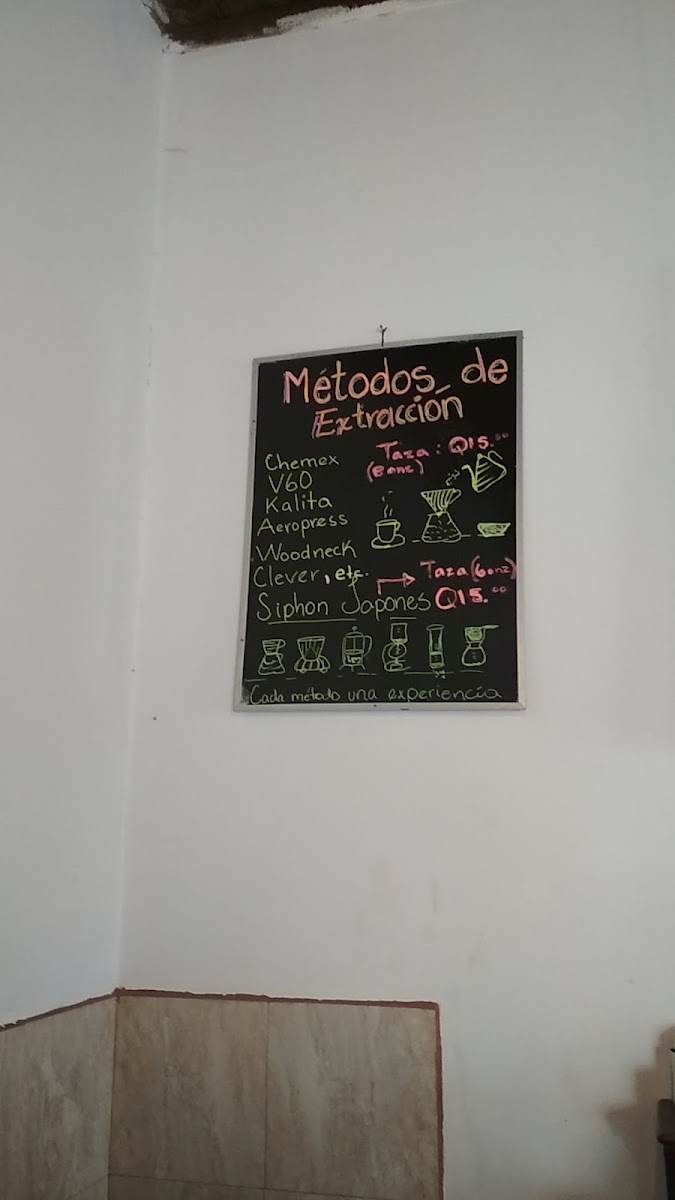 Métodos de
Extracción
Taza: Q15.00
(8onz)
Chemex
V60
Kalita
Aeropress
Woodneck
Clever, etc.
Taza (6onz)
Siphon Japones Q15.00
Cada método una experiencia